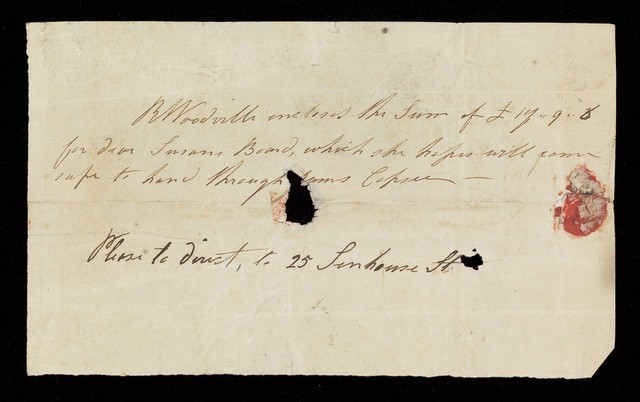 R Woodville encloses the Sum of £ 17..9..8
for dear Susans Board, which she hopes will come
safe to hand through
Please to direct, to 25 Senhouse St